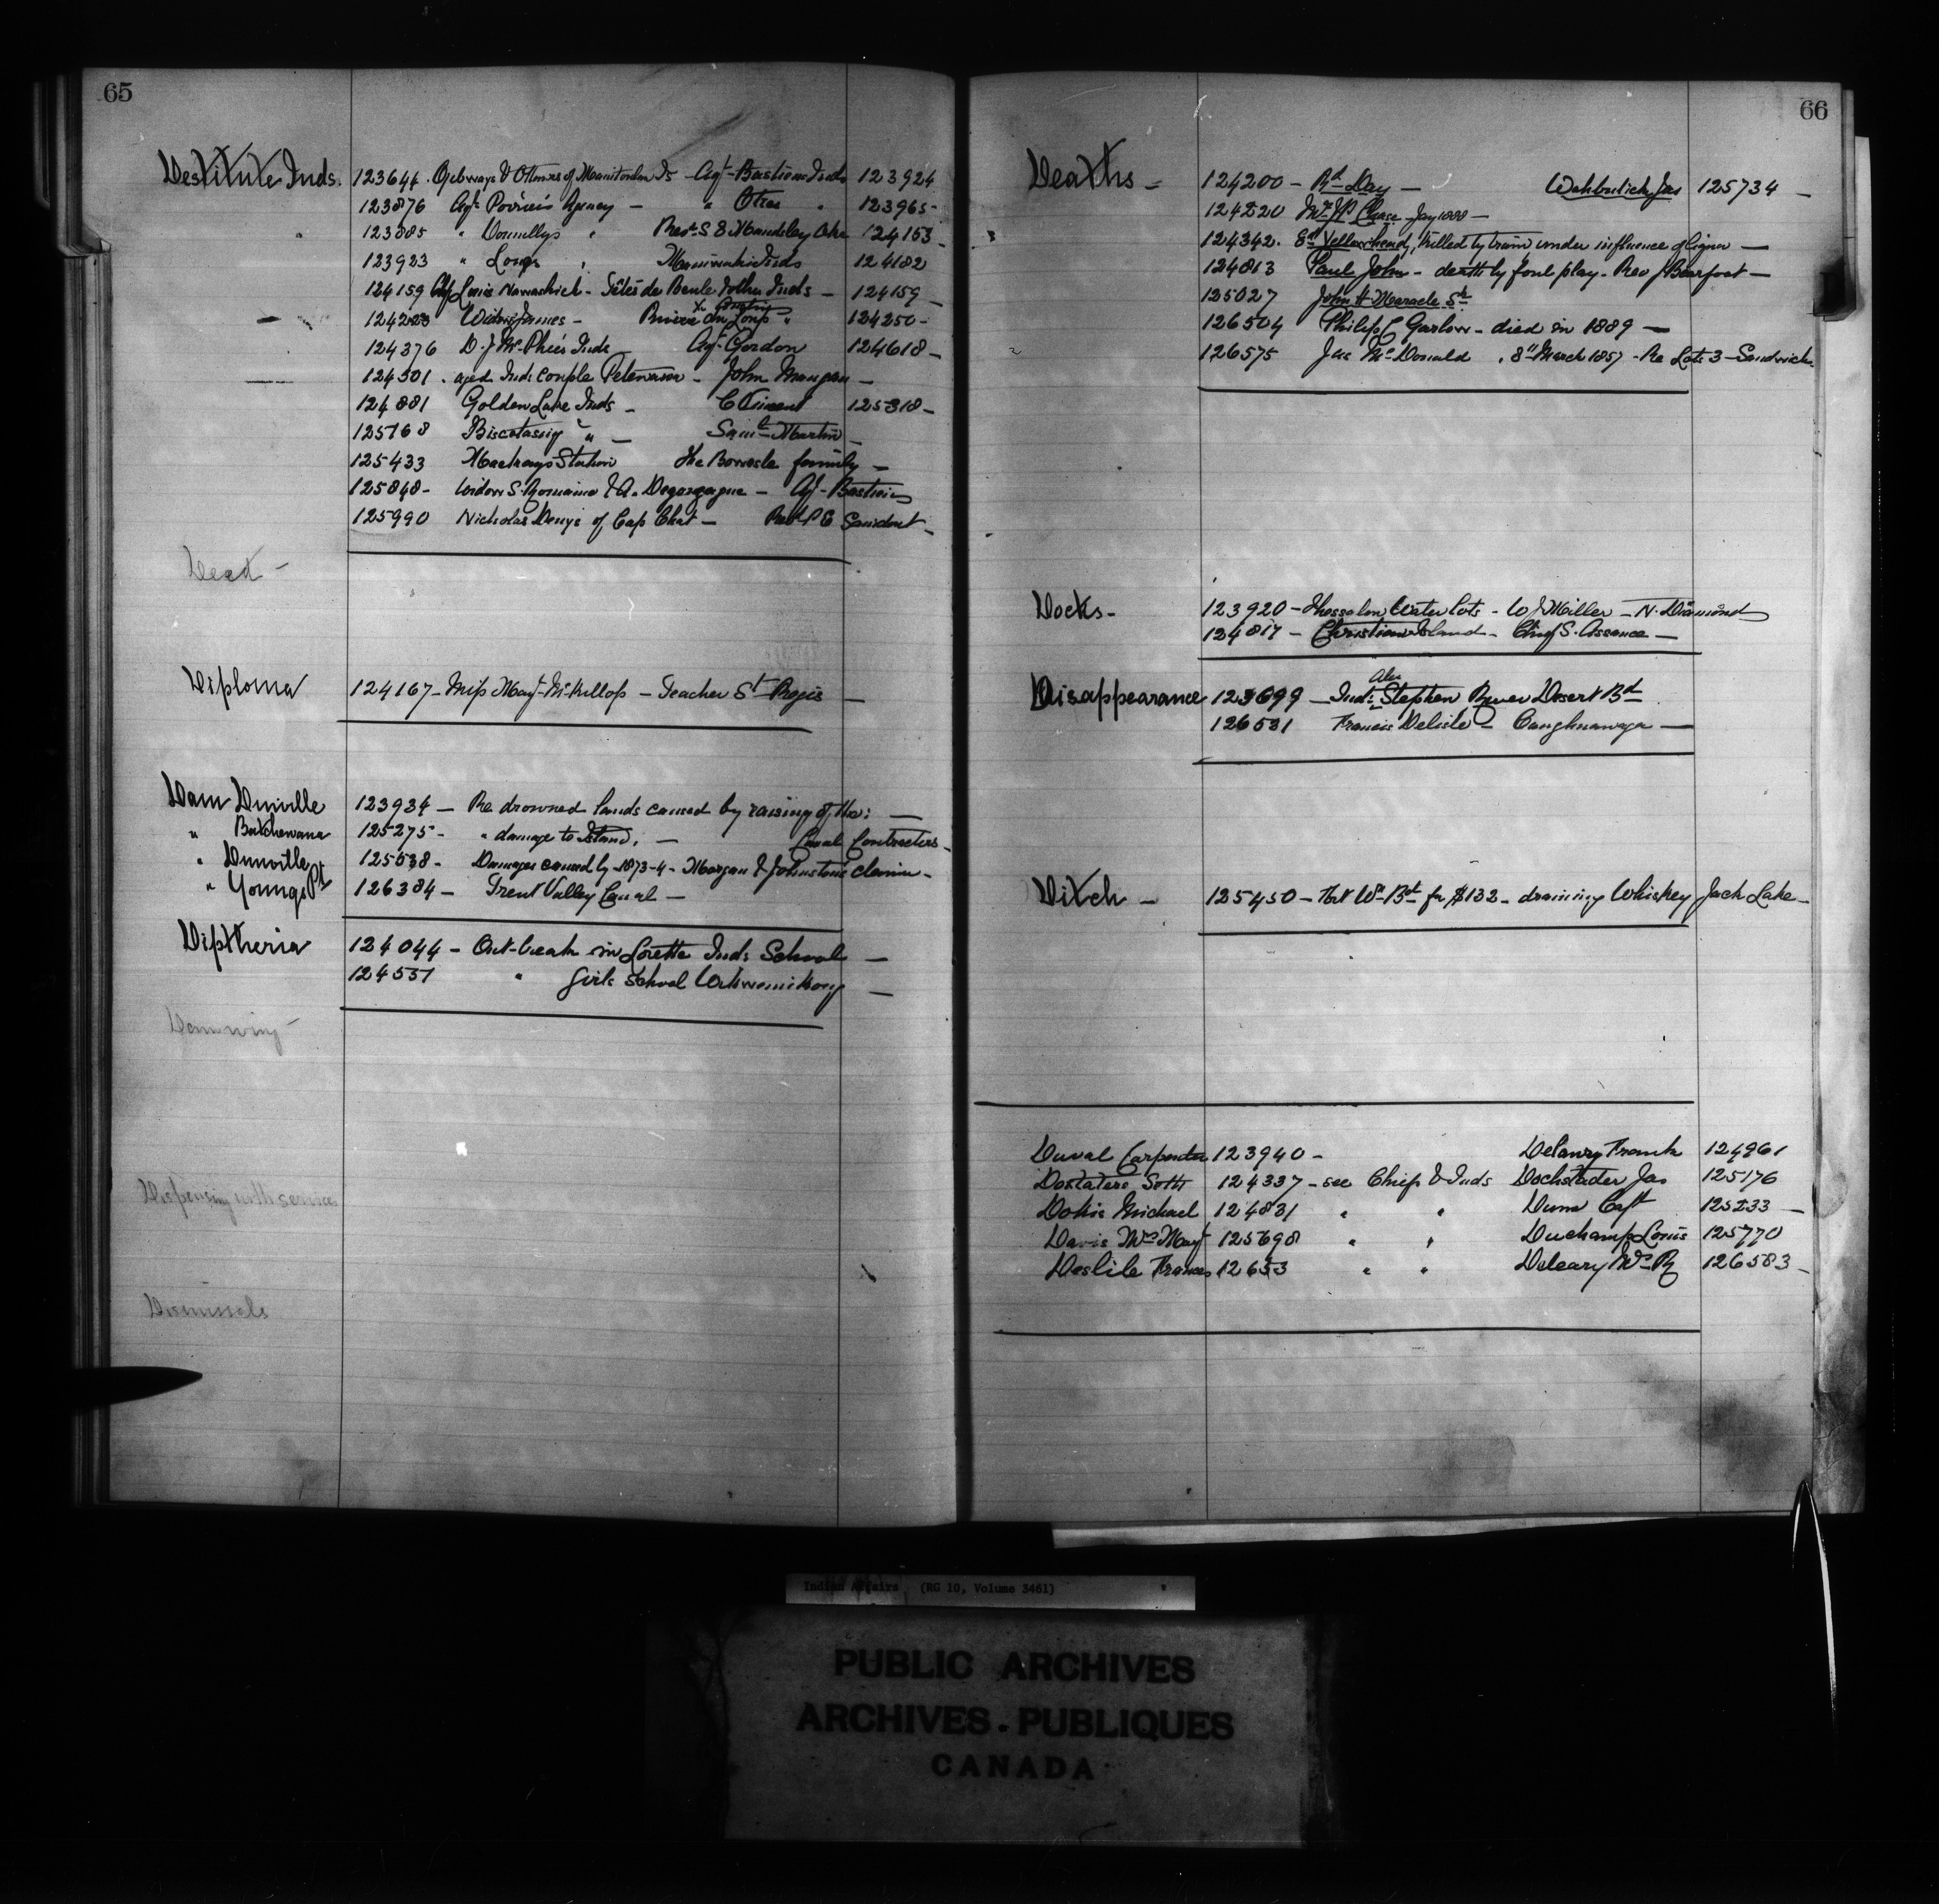 65
Destitute Inds. 123644. Ojibways & Ottawas of Manitoulin Is - Agt- Bastiens Inds 123924
123876 Agt Poirier's Agency - " Otter " 123965-
123885 " Donnellys " Revd. S E Maudsley Oka 124153-
123923 " Long's " Maniwaki Inds 124182
124159 Chf Louis Nawashish - Têtés de Boule Inds - 124159 -
124223 Widow James - Riviere du Loup " 124250-
124376 D. J McPhee's Inds Agt Gordon 124618-
124501. aged Inds couple John Mangan -
124881 Golden Lake Inds - 125318-
125168 Biscotasing " - Saml Martin -
125433 Station The family -
125848- Widow S. Romaine & A. - Agt- Bastien
125990 Nicholas Denys of Cap Chat - Revd P E
Dead -
Diploma 124167- Miss Mary McKillop - Teacher St Regis -
Dam Dunville 123934 - Re drowned lands caused by raising of the: -
" Batchewana 125275- " damage to Island, - Canal Contractors -
" Dunville 125538- Damages caused by -1873-4- Morgan & Johnstone claim -
" Youngs Pt 126384 - Trent Valley Canal -
Diptheria 124044 - Out-break in Lorette Inds School -
124551 " Girls School Wikwemikong -
Damming -
Dispensing with services
Dismissals
66
Deaths - 124200 - Rd Day - Jas 125734 -
124220 Chase - Jany 1888 -
124342. Yellowhead, killed by train under influence of liquor -
124813 Paul John - death by foul play - Rev J Bearfoot -
125027 John H Maracle Sr
126504 Philip Garlow - died in 1889 -
126575 Jas McDonald . 8th March 1857 - Re Lot 3 - Sandwich
Docks - 123920 - Thessalon Water lots - W J Miller - N. Diamond
124817 - Christian Island - Chief S. Assance -
Alex
Disappearance 123699 - Ind: Stephen River Desert Bd
126531 Francis Delisle - Caughnawaga -
Ditch - 125450 - for $132 - draining Whiskey Jack Lake -
Duval Carpenter 123940 - Delany Frank 124961
124337 - see Chief & Inds Dochstader Jas 125176
Dokis Michael 124831 " " Dunn Capt 125233 -
Davis Mrs Mary 125698 " " Duchamp Louis 125770
Deslile Frances 12653 " " Deleary Wm R 126583 -
Indian Affairs (RG 10, Volume 3461)
PUBLIC ARCHIVES
ARCHIVES PUBLIQUES
CANADA